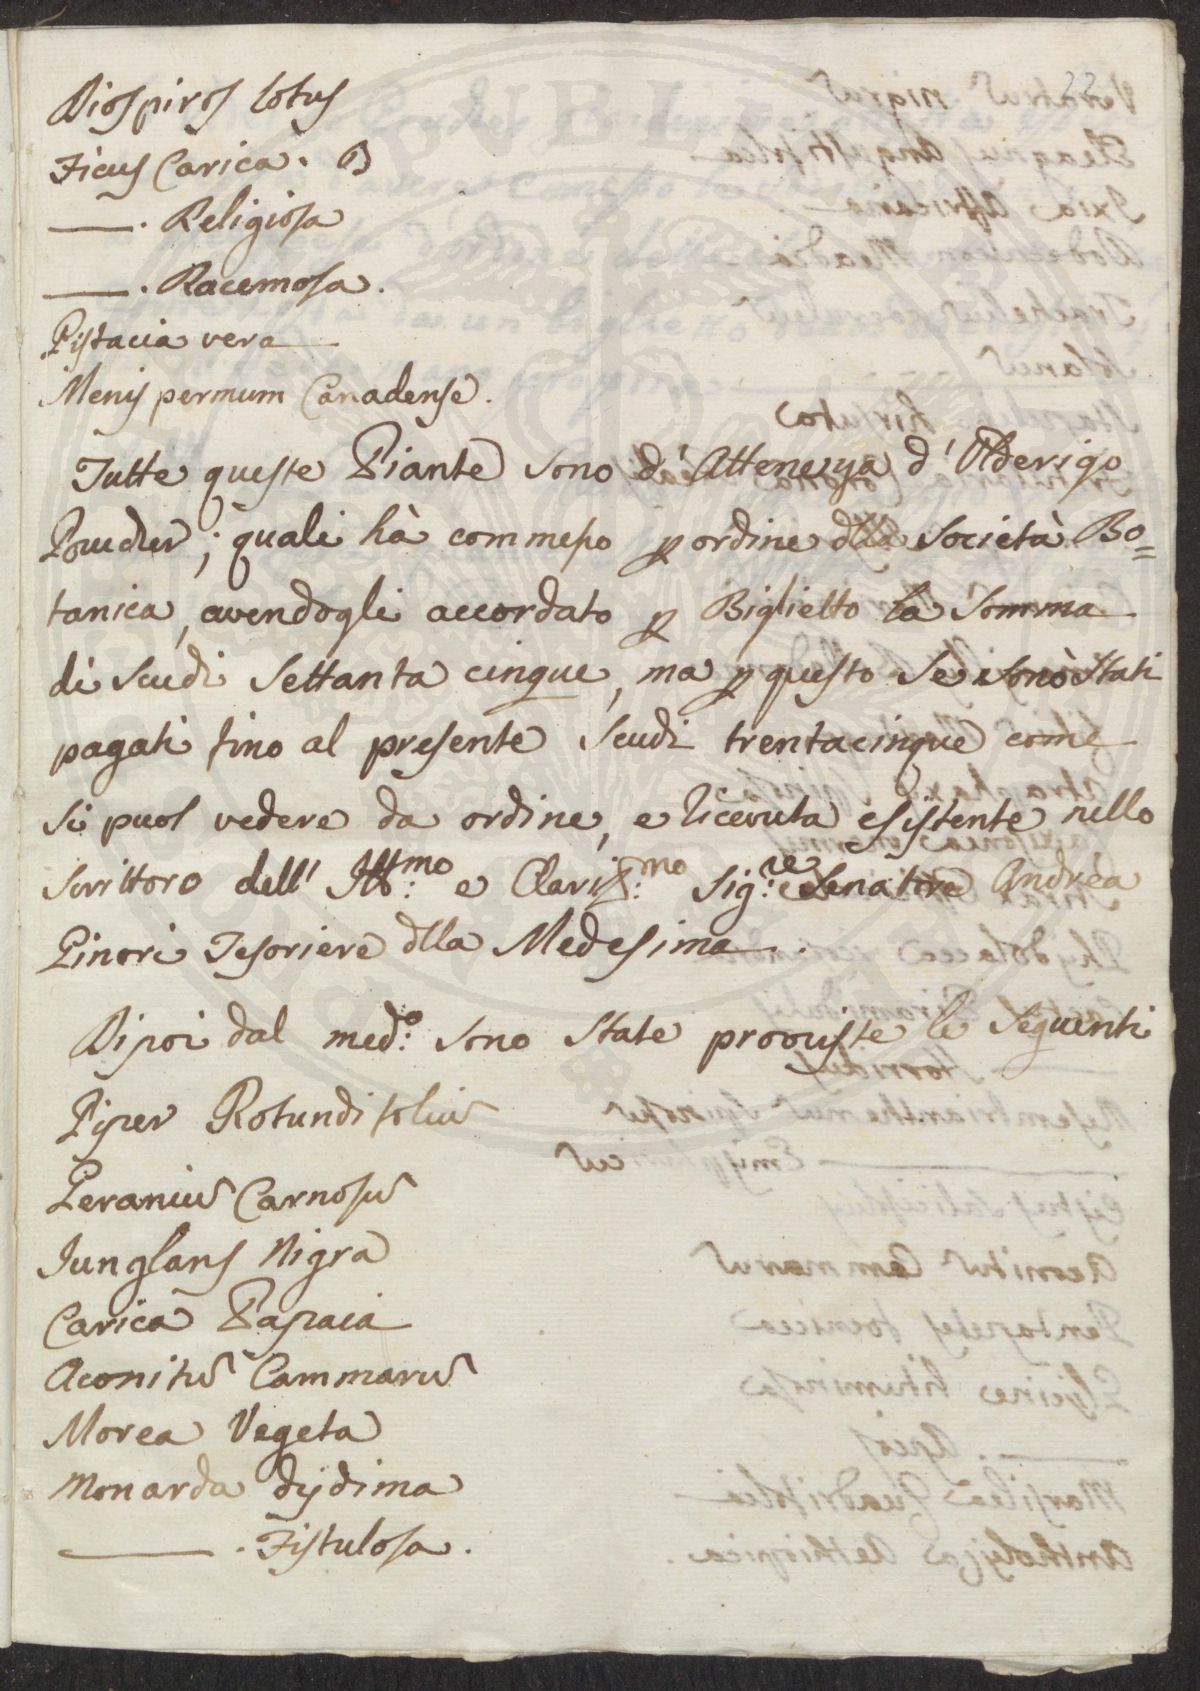 22
Diospiros lotus
Ficus Carica. B
——. Religiosa
——. Racemosa.
Pistacia vera
Menispermum Canadense.
Tutte queste Piante sono d'Attenenza d'Ulderigo
; quali hà commesso p ordine dlla Società Bo=
tanica, avendogli accordato p Biglietto la Somma
di scudi Settanta cinque, ma p questo se i sonò Stati
pagati fino al presente Scudi trentacinque come
si puol vedere da ordine, e ricevuta esistente nello
scrittoro dell' Ill:mo e Claris:mo Sig:re Senatore Andrea
Ginori Tesoriere dlla Medesima.
Dipoi dal med:o sono State provviste le Seguenti
Piper Rotundifoliū
Geraniū Carnosū
Junglans Nigra
Carica Papaia
Aconitū Cammarū
Morea Vegeta
Monarda dydima
——. Fistulosa.